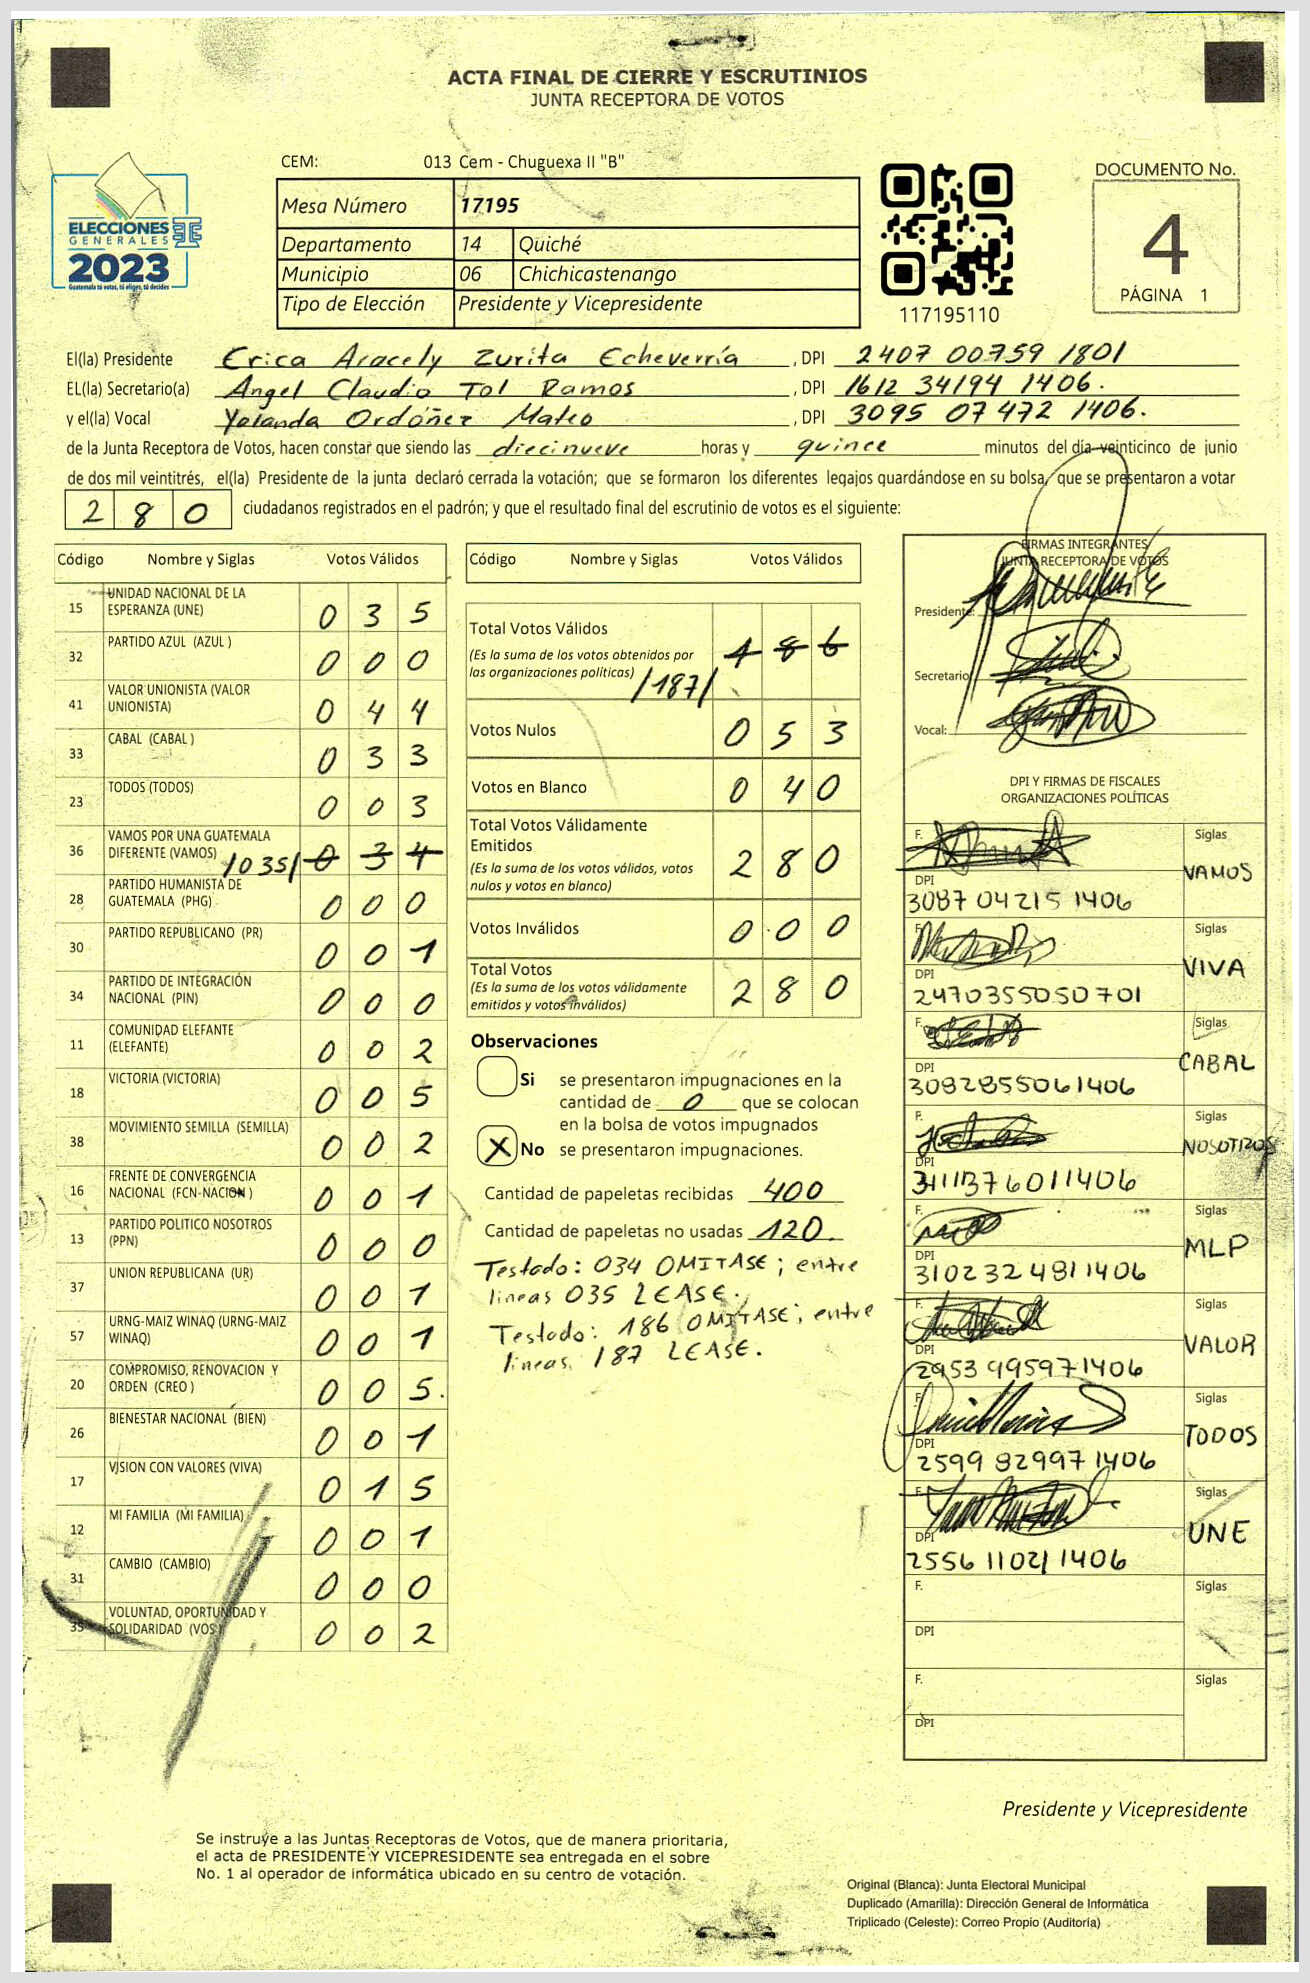 ACTA FINAL DE CIERRE Y ESCRUTINIOS
JUNTA RECEPTORA DE VOTOS
CEM: 013 Cem - Chuguexa II "B"
ELECCIONES
GENERALES
2023
Guatemala tú votas, tú eliges, tú decides
Mesa Número 17195
Departamento 14 Quiché
Municipio 06 Chichicastenango
Tipo de Elección Presidente y Vicepresidente
117195110
DOCUMENTO No.
4
PÁGINA 1
El(la) Presidente Erica Aracely Zurita Echeverría , DPI 2407 00759 1801
EL(la) Secretario(a) Angel Claudio Tol Ramos , DPI 1612 34194 1406.
y el(la) Vocal Yolanda Ordóñez Mateo , DPI 3095 07472 1406.
de la Junta Receptora de Votos, hacen constar que siendo las diecinueve horas y quince minutos del día veinticinco de junio
de dos mil veintitrés, el(la) Presidente de la junta declaró cerrada la votación; que se formaron los diferentes legajos quardándose en su bolsa, que se presentaron a votar
2 8 0 ciudadanos registrados en el padrón; y que el resultado final del escrutinio de votos es el siguiente:
Código Nombre y Siglas Votos Válidos
15 UNIDAD NACIONAL DE LA ESPERANZA (UNE) 0 3 5
32 PARTIDO AZUL (AZUL ) 0 0 0
41 VALOR UNIONISTA (VALOR UNIONISTA) 0 4 4
33 CABAL (CABAL ) 0 3 3
23 TODOS (TODOS) 0 0 3
36 VAMOS POR UNA GUATEMALA DIFERENTE (VAMOS) /035/ 0 3 4
28 PARTIDO HUMANISTA DE GUATEMALA (PHG) 0 0 0
30 PARTIDO REPUBLICANO (PR) 0 0 1
34 PARTIDO DE INTEGRACIÓN NACIONAL (PIN) 0 0 0
11 COMUNIDAD ELEFANTE (ELEFANTE) 0 0 2
18 VICTORIA (VICTORIA) 0 0 5
38 MOVIMIENTO SEMILLA (SEMILLA) 0 0 2
16 FRENTE DE CONVERGENCIA NACIONAL (FCN-NACION ) 0 0 1
13 PARTIDO POLITICO NOSOTROS (PPN) 0 0 0
37 UNION REPUBLICANA (UR) 0 0 1
57 URNG-MAIZ WINAQ (URNG-MAIZ WINAQ) 0 0 1
20 COMPROMISO, RENOVACION Y ORDEN (CREO ) 0 0 5.
26 BIENESTAR NACIONAL (BIEN) 0 0 1
17 VISION CON VALORES (VIVA) 0 1 5
12 MI FAMILIA (MI FAMILIA) 0 0 1
31 CAMBIO (CAMBIO) 0 0 0
35 VOLUNTAD, OPORTUNIDAD Y SOLIDARIDAD (VOS) 0 0 2
Código Nombre y Siglas Votos Válidos
Total Votos Válidos
(Es la suma de los votos obtenidos por las organizaciones políticas) /187/ 1 8 6
Votos Nulos 0 5 3
Votos en Blanco 0 4 0
Total Votos Válidamente Emitidos
(Es la suma de los votos válidos, votos nulos y votos en blanco) 2 8 0
Votos Inválidos 0 0 0
Total Votos
(Es la suma de los votos válidamente emitidos y votos inválidos) 2 8 0
Observaciones
Si se presentaron impugnaciones en la
cantidad de 0 que se colocan
en la bolsa de votos impugnados
X No se presentaron impugnaciones.
Cantidad de papeletas recibidas 400
Cantidad de papeletas no usadas 120.
Testado: 034 OMITASE; entre
lineas 035 LEASE.
Testado: 186 OMITASE; entre
lineas 187 LEASE.
FIRMAS INTEGRANTES
JUNTA RECEPTORA DE VOTOS
Presidente:
Secretario
Vocal:
DPI Y FIRMAS DE FISCALES
ORGANIZACIONES POLÍTICAS
F. Siglas VAMOS
DPI 3087 04215 1406
F. Siglas VIVA
DPI 2470355050701
F. Siglas CABAL
DPI 3082855061406
F. Siglas NOSOTROS
DPI 3111376011406
F. Siglas MLP
DPI 3102324811406
F. Siglas VALOR
DPI 2953 995971406
F. Siglas TODOS
DPI 2599 82997 1406
F. Siglas UNE
DPI 2556 11021 1406
F. Siglas
DPI
F. Siglas
DPI
Presidente y Vicepresidente
Se instruye a las Juntas Receptoras de Votos, que de manera prioritaria,
el acta de PRESIDENTE Y VICEPRESIDENTE sea entregada en el sobre
No. 1 al operador de informática ubicado en su centro de votación.
Original (Blanca): Junta Electoral Municipal
Duplicado (Amarilla): Dirección General de Informática
Triplicado (Celeste): Correo Propio (Auditoría)